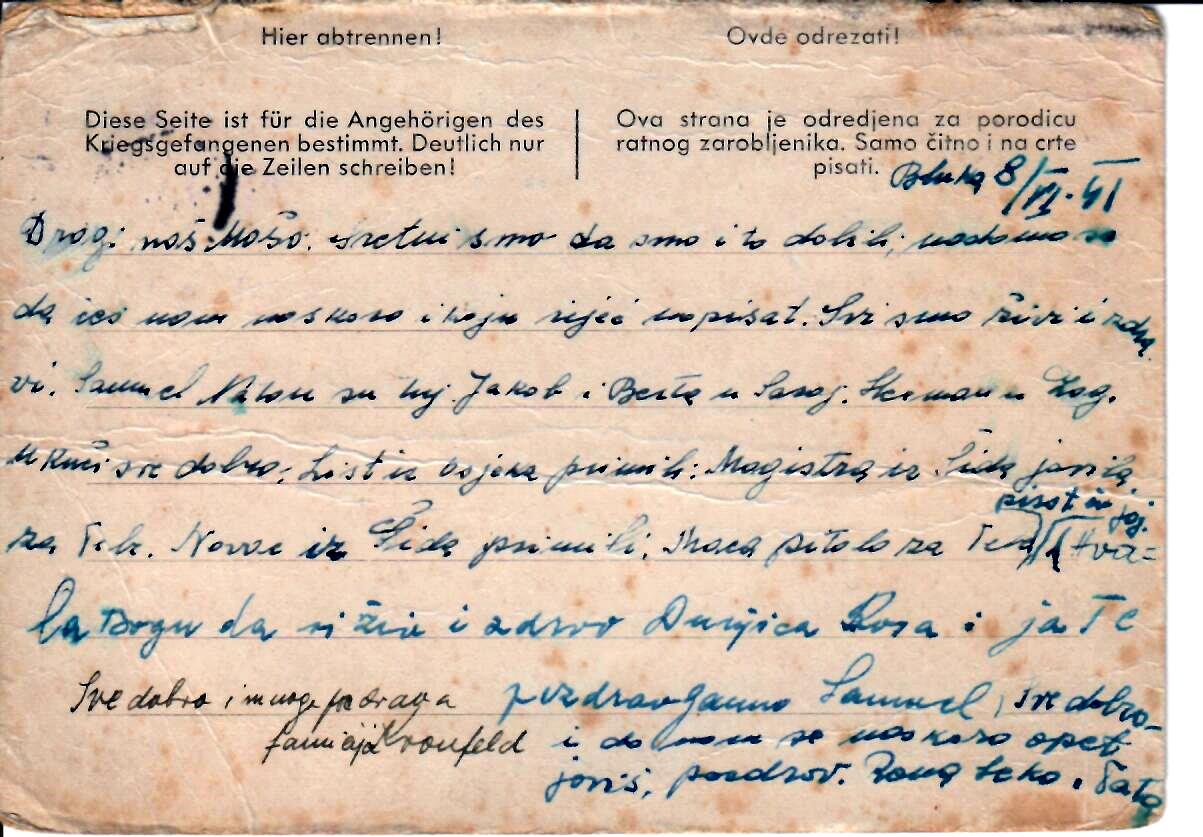 Hier abtrennen!
Ovde odrezati!
Diese Seite ist für die Angehörigen des
Kriegsgefangenen bestimmt. Deutlich nur
auf die Zeilen schreiben!
Ova strana je odredjena za porodicu
ratnog zarobljenika. Samo čitno i na crte
pisati.
8/VI-41
Dragi naš Mošo. Sretni smo da smo i to dobili, nadamo se
da ćeš nam naskoro i koju riječ napisat. Svi smo živi i zdra
vi. Samuel su tuj. Jakob i Berta u Saraj. Herman u Zag.
U kući sve dobro; List iz Osjeka primili: Magistra iz Šida javila
pisat ću joj.
za Tebe. Novac iz Šida primili, pitala za Tebe Hva=
la Bogu da si živ i zdrav Rosa i ja Te
pozdravljamo Samuel, sve dobro
Sve dobro i mnogo pozdrava
familija Kronfeld
i da nam se naskoro opet
javiš, pozdrav. Tata